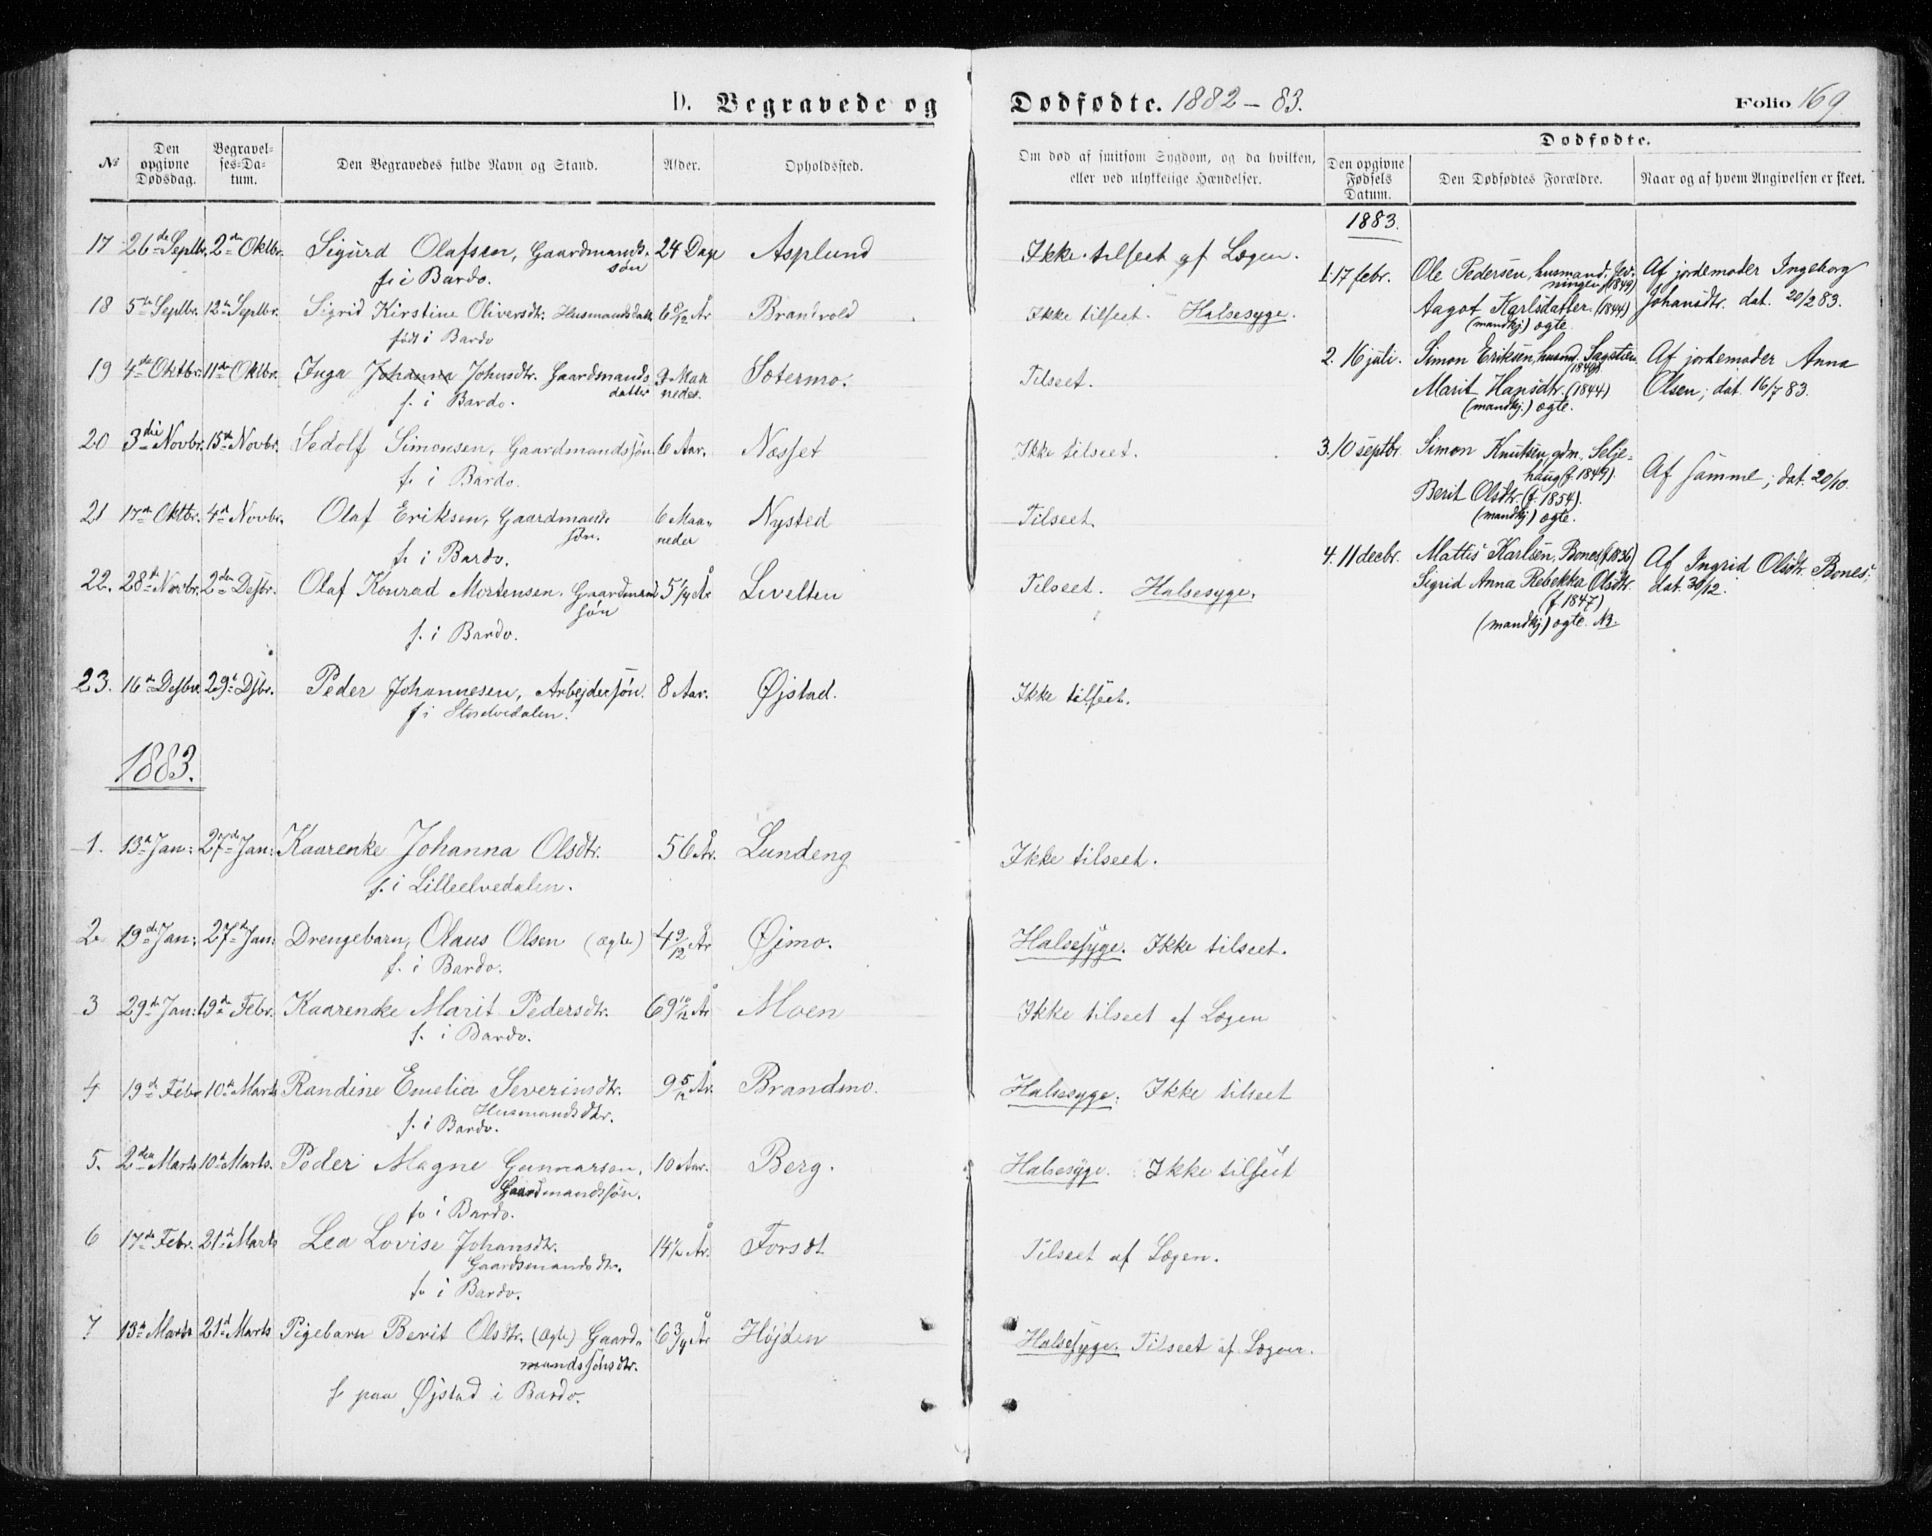 D. Begravede og Dødfødte. 1882-83. Folio 169
№ Den opgivne Dødsdag. Begravelses-Datum. Den Begravedes fulde Navn og Stand. Alder. Opholdssted.
Om død af smitsom Sygdom, og da hvilken, eller ved ulykkelige Hændelser.
Dødfødte.
Den opgivne Fødsels Datum. Den Dødfødtes Forældre. Naar og af hvem Angivelsen er skeet.
17 26de Septbr. 2den Oktbr. Sigurd Olafsen, Gaardmands- 24 Dage Asplund Ikke tilseet af Lægen.
søn
f. i Bardo.
18 5te Septbr. 12te Septbr. Sigrid Kirstine Oliversdtr. Husmandsdatt. 6 År Brandvold Ikke tilseet. Halsesyge.
født i Bardo
19 4de Oktbr. 11te Oktbr. Inga Johanna Johnsdtr. Gaardmands- Maa- Sotermo. Tilseet.
datter nedes.
f. i Bardo.
20 3die Novbr. 15de Novbr. Sedolf Simonsen, Gaardmandssøn. 6 Aar. Næsset Ikke tilseet.
f. i Bardo.
21 17de Oktbr. 4de Novbr. Olaf Eriksen, Gaardmands- 6 Maa- Nysted Tilseet.
søn. neder
f. i Bardo.
22. 28de Novbr. 2den Desbr. Olaf Konrad Mortensen. Gaardmand 5 1/4 År Livelten Tilseet. Halsesyge.
søn
f. i Bardo.
23. 16de Desbr. 29de Dsbr. Peder Johannesen, Arbejdersøn. 8 Aar. Øjstad. Ikke tilseet.
f i Storelvedalen.
1883.
1. 13de Jan: 27de Jan: Kaarenke Johanna Olsdtr. 56 År. Lundeng Ikke tilseet.
f. i Lilleelvedalen.
2 19de Jan: 27de Jan: Drengebarn, Olaus Olsen (ægte) 4 9/12 År Øjmo. Halsesyge. Ikke tilseet.
f. i Bardo.
3 29de Jan: 19de Febr. Kaarenke Marit Pedersdtr. 69 10/12 År Moen Ikke tilseet af Lægen
f. i Bardo.
4 19de Febr 10de Marts Randine Emelia Severinsdtr. 9 5/12 År. Brandmo. Halsesyge. Ikke tilseet
Husmandsdtr.
f. i Bardo.
5. 2den Marts 10de Marts. Peder Magne Gunnarsen, 10 Aar. Berg. Halsesyge. Ikke tilseet
Gaardmandssøn.
f. i Bardo.
6 17de Febr. 21de Marts Lea Lovise Johansdtr. 14 1/2 År. Forsdt Tilseet af Lægen.
Gaardsmandsdtr.
f. i Bardo.
7 13de Marts 21de Marts Pigebarn Berit Olsdtr. (ægte) Gaard- 6 3/4 År Højden Halsesyge. Tilseet af Lægen.
mandssønsdtr.
f. paa Øjstad i Bardo.
1883.
1. 17 febr. Ole Pedersen, husmand, Af jordemoder Ingeborg
(1849) Johansdtr. dat. 20/2 83.
Aagot Karlsdatter (1844)
(mandkj) ægte.
2. 16 juli. Simon Eriksen, husmd. Sagstien Af jordemoder Anna
(1849)
Marit Hansdtr. (1844) Olsen; dat. 16/7 83.
(mandkj.) ægte.
3. 10 septbr. Simon Knutsen, gdm. Selje-
haug (f. 1849). Af samme; dat. 20/10.
Berit Olsdtr. (f. 1854).
(mandkj) ægte.
4. 11 decbr. Mattis Karlsen, Bones (f. 1836) Af Ingrid Olsdtr. Bones;
Sigrid Anna Rebekka Olsdtr. dat. 30/12.
(f. 1847)
(mandkj) ægte.